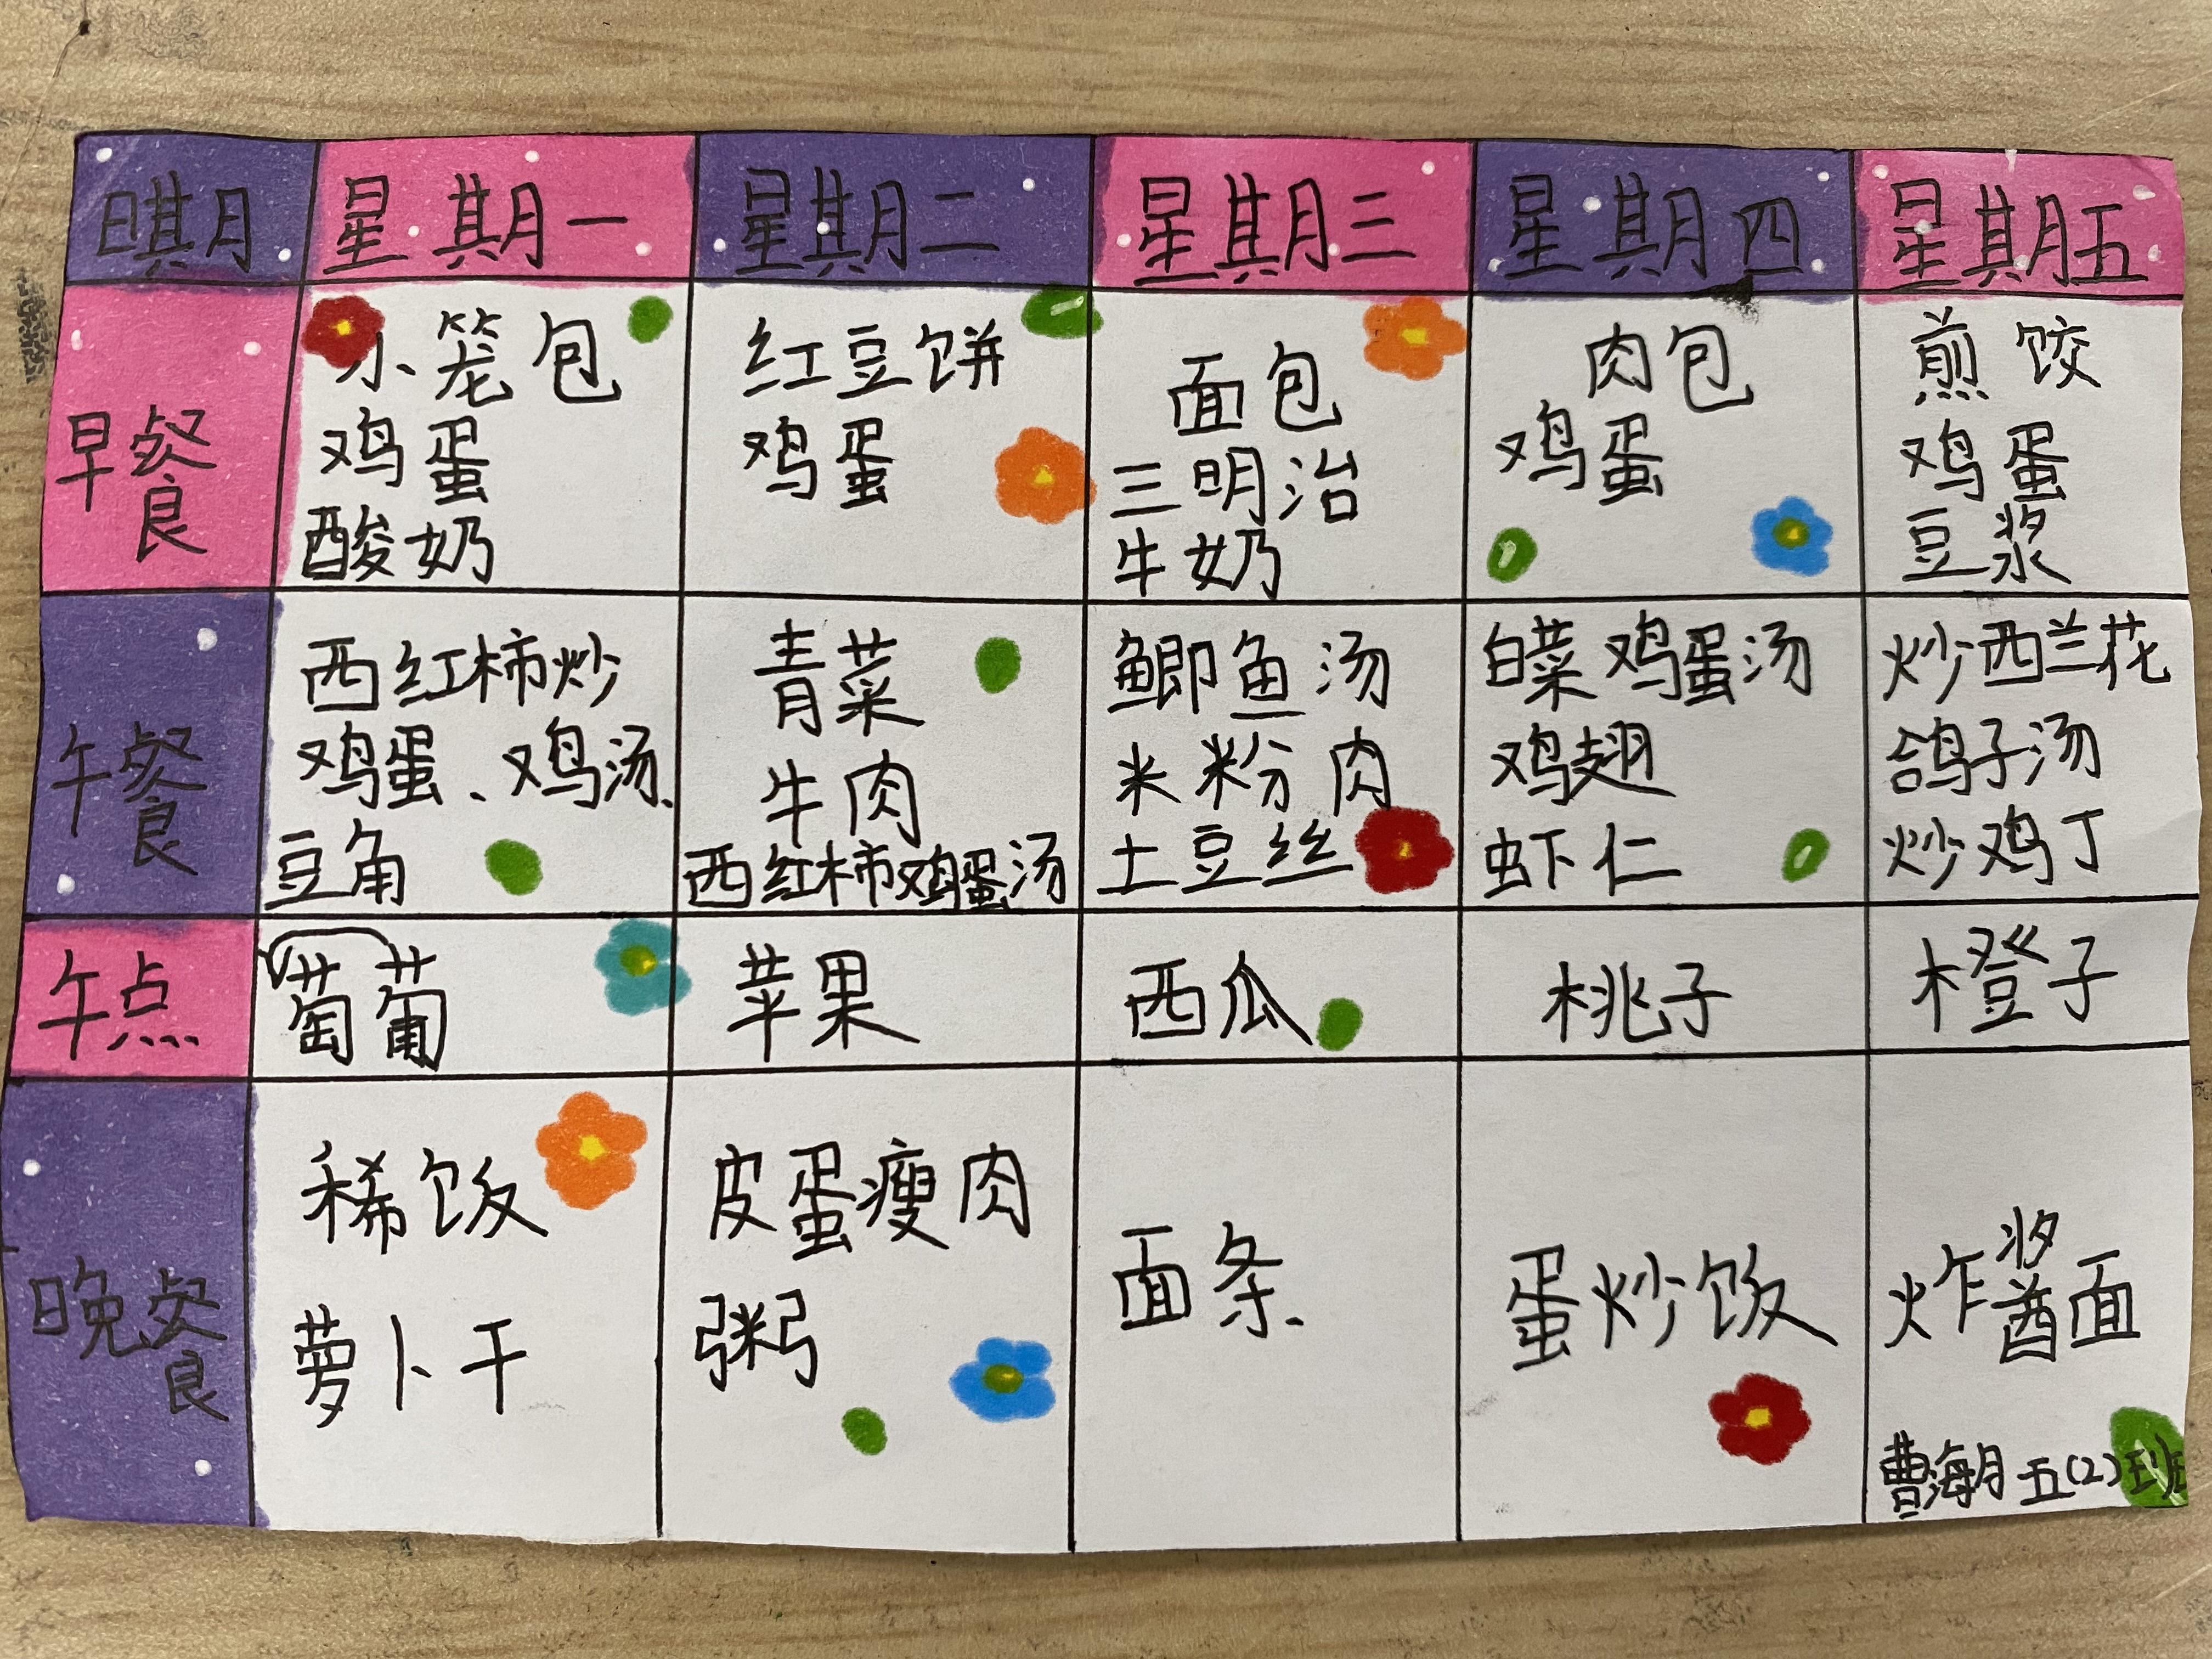 日期 星期一 星期二 星期三 星期四 星期五
早餐
小笼包
鸡蛋
酸奶
红豆饼
鸡蛋
面包
三明治
牛奶
肉包
鸡蛋
煎饺
鸡蛋
豆浆
午餐
西红柿炒
鸡蛋、鸡汤、
豆角
青菜
牛肉
西红柿鸡蛋汤
鲫鱼汤
米粉肉
土豆丝
白菜鸡蛋汤
鸡翅
虾仁
炒西兰花
鸽子汤
炒鸡丁
午点
萄葡
苹果
西瓜
桃子
橙子
晚餐
稀饭
萝卜干
皮蛋瘦肉
粥
面条
蛋炒饭
炸酱面
曹海月 五(2)班